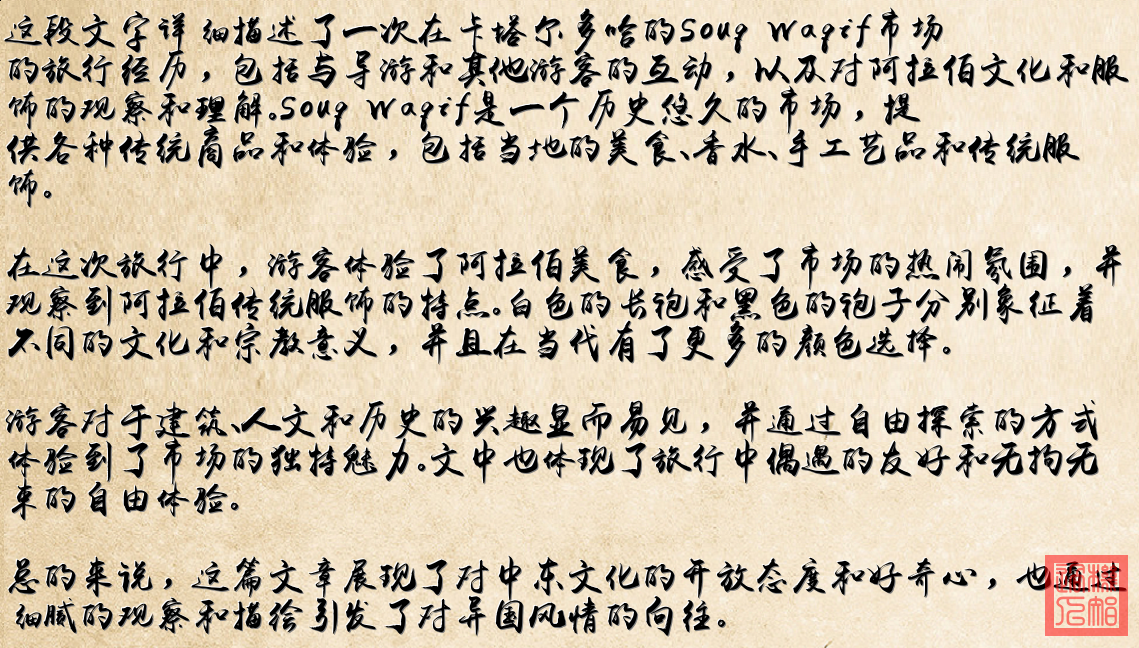 这段文字详细描述了一次在卡塔尔多哈的Souq Waqif市场
的旅行经历，包括与导游和其他游客的互动，以及对阿拉伯文化和服
饰的观察和理解。Souq Waqif是一个历史悠久的市场，提
供各种传统商品和体验，包括当地的美食、香水、手工艺品和传统服
饰。
在这次旅行中，游客体验了阿拉伯美食，感受了市场的热闹氛围，并
观察到阿拉伯传统服饰的特点。白色的长袍和黑色的袍子分别象征着
不同的文化和宗教意义，并且在当代有了更多的颜色选择。
游客对于建筑、人文和历史的兴趣显而易见，并通过自由探索的方式
体验到了市场的独特魅力。文中也体现了旅行中偶遇的友好和无拘无
束的自由体验。
总的来说，这篇文章展现了对中东文化的开放态度和好奇心，也通过
细腻的观察和描绘引发了对异国风情的向往。